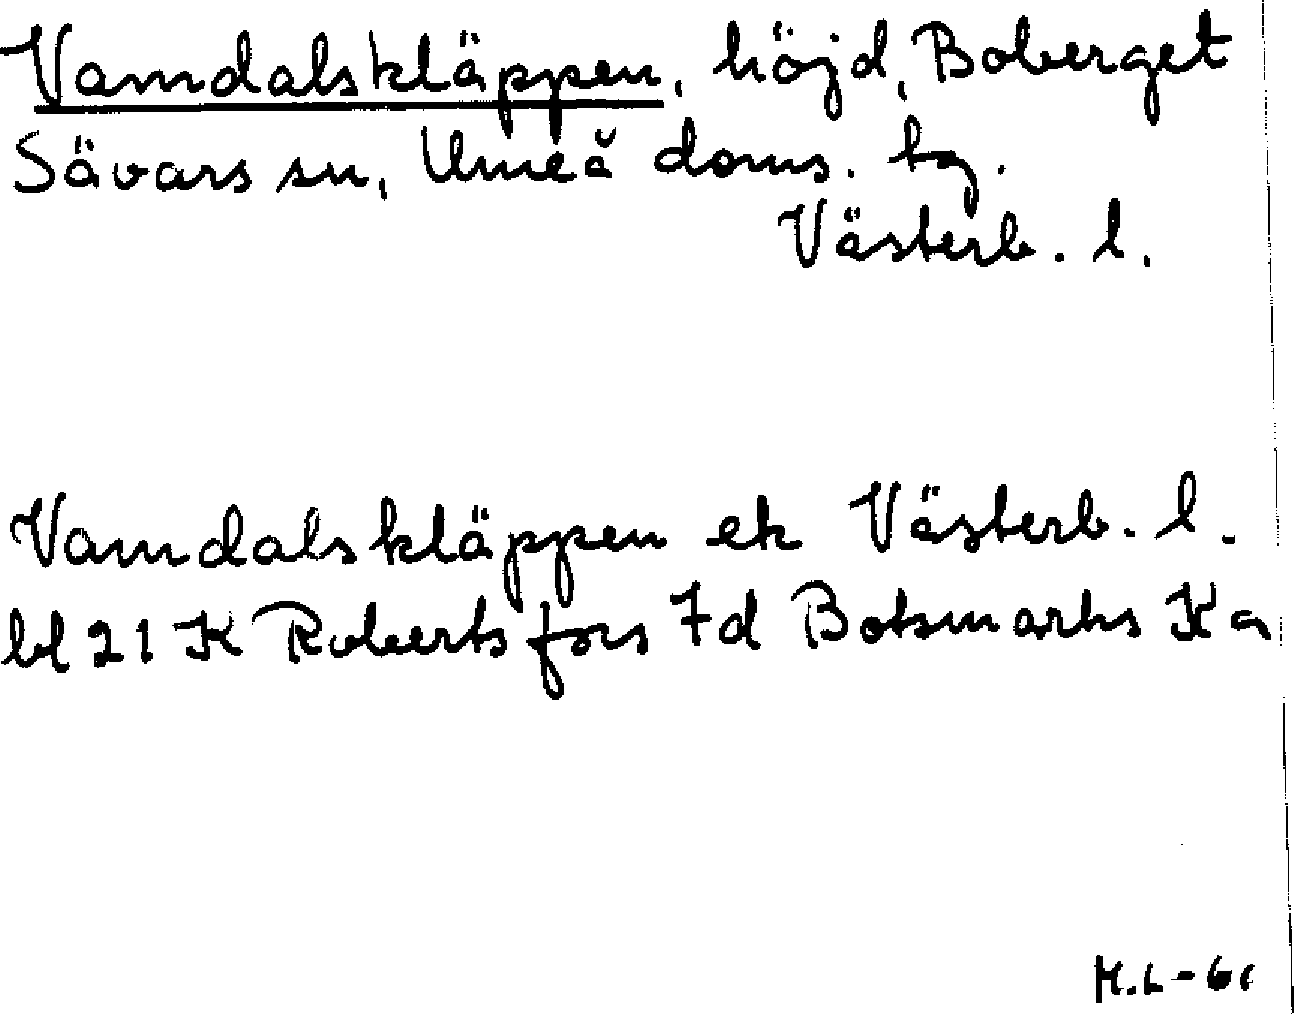 Vamdalskläppen, höjd, Boberget
Sävars sn, Umeå doms. tg.
Västerb. l.
Vamdalskläppen ek Västerb. l.
bl 21 K Robertsfors 7d Botsmarks Ka
M.L-61